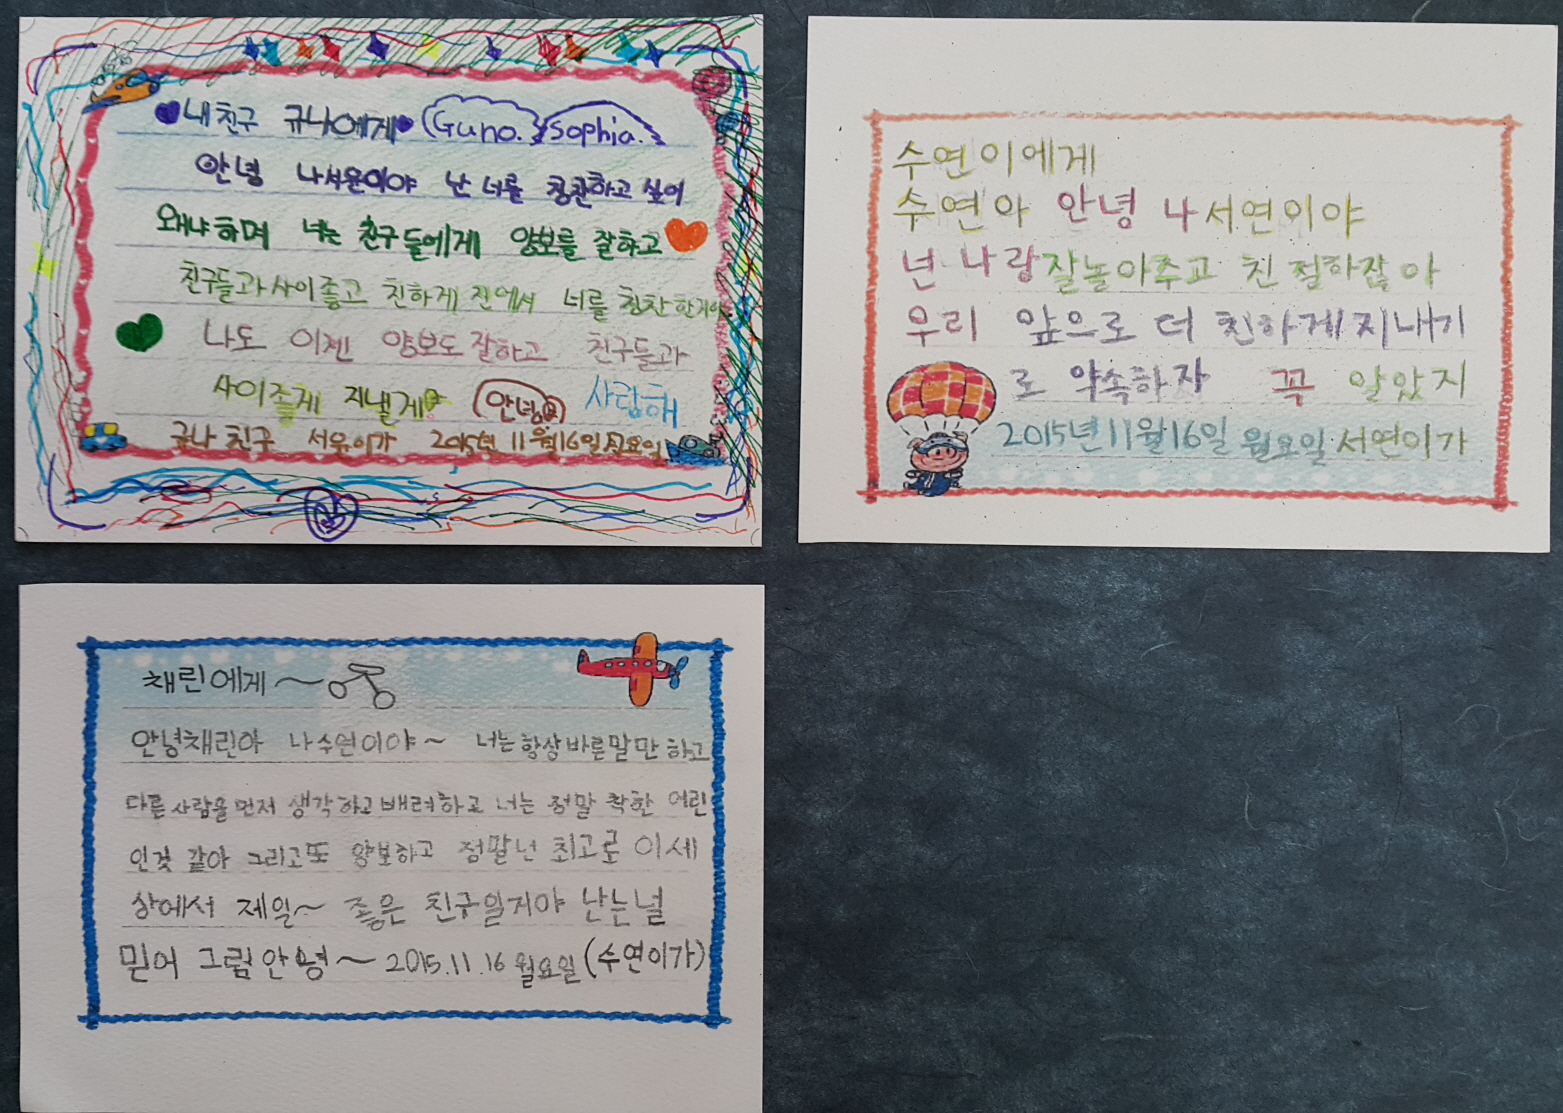 내친구 규나에게 (Guna. Sophia.
안녕 나서윤이야 난 너를 칭찬하고 싶어
왜냐하며 너는 친구들에게 양보를 잘하고
친구들과 사이좋고 친하게 진에서 너를 칭찬 한거야
나도 이젠 양보도 잘하고 친구들과
사이좋게 지낼게 안녕 사랑해
규나 친구 서윤이가 2015년 11월16일 월요일
수연이에게
수연아 안녕 나 서연이야
넌 나랑 잘놀아주고 친절하잖아
우리 앞으로 더 친하게 지내기
로 약속하자 꼭 알았지
2015년 11월 16일 월요일 서연이가
채린에게~
안녕채린아 나수연이야~ 너는 항상 바른말만 하고
다른 사람을 먼저 생각하고 배려하고 너는 정말 착한 어린
인것 같아 그리고또 양보하고 정말넌 최고로 이세
상에서 제일~ 좋은 친구일거야 난는널
믿어 그럼 안녕~ 2015.11.16 월요일 (수연이가)